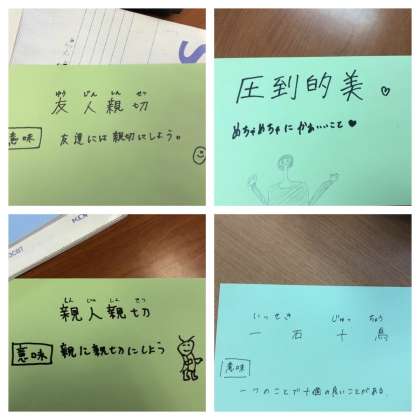 ゆう じん しん せつ
友人親切
意味 友達には親切にしよう。
圧到的美。♡
めちゃめちゃにかわいいこと♥
しん じん しん せつ
親人親切
意味 親に親切にしよう
いっ せき じゅっ ちょう
一石十鳥
意味
一つのことで十個の良いことがある。